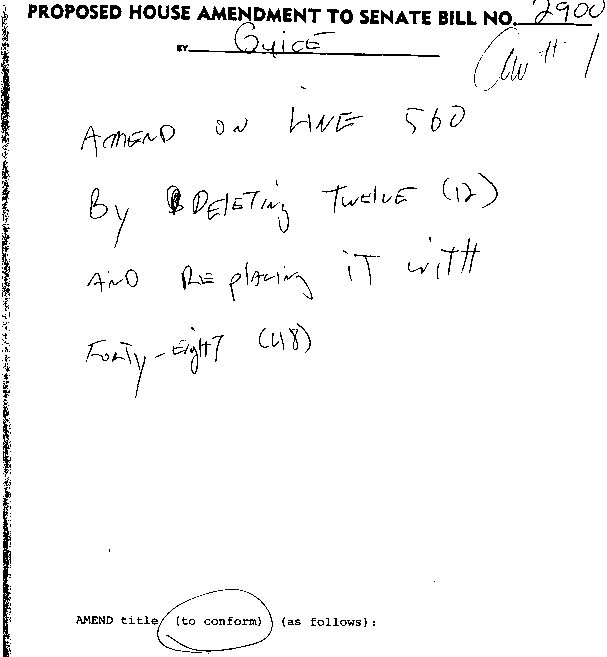 PROPOSED HOUSE AMENDMENT TO SENATE BILL NO. 2900
BY Guice
Am # 1
AMEND ON LINE 560
By DELETING TWELVE (12)
AND REplacing iT wiTH
FORTY-EighT (48)
AMEND title (to conform) (as follows):